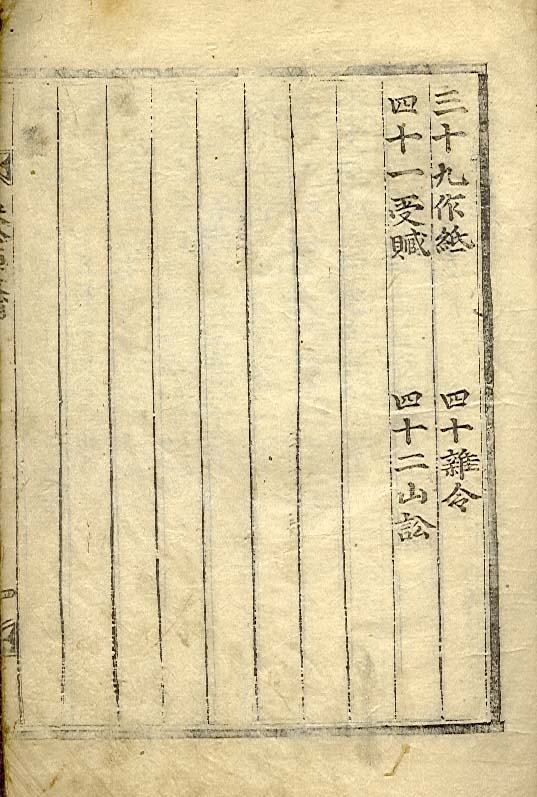 三十九作紙
四十雜令
四十一受贓
四十二山訟